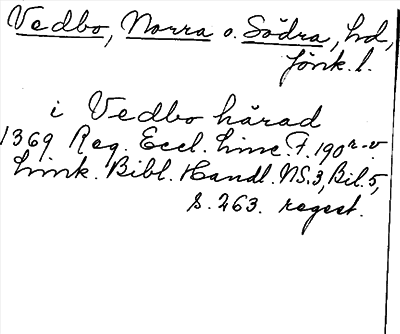 Vedbo, Norra o. Södra, hd,
Jönk. l.
i Vedbo härad
1369 Reg. Eccl. Linc. F. 190 r-v.
Link. Bibl. Handl. NS.3, Bil. 5,
s. 263. regest.